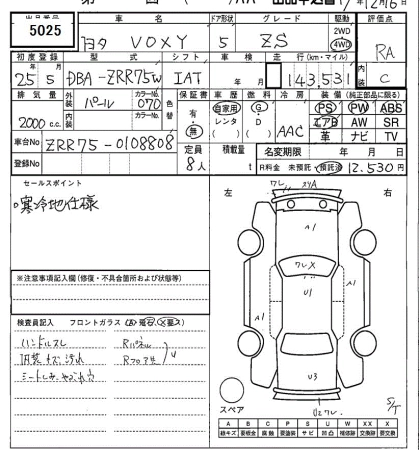 出品番号 車名 ドア形状 グレード 駆動 評価点
5025 トヨタ VOXY 5 ZS 2WD 4WD RA
初度登録 型式 シフト 車検 走行(km・マイル) 内装
25年5月 DBA-ZRR75W IAT 年 月 143,531 C
排気量 外装 カラーNo. 色替 保証書 車歴 燃料 冷房 装備(純正部品に限る)
2000c.c. パール 070 有 自家用 G PS PW ABS
内装 カラーNo. 無 レンタ D AAC エアB AW SR
( ) ( ) 革 ナビ TV
車台No ZRR75-0108808 定員 積載量 名変期限 年 月 日
登録No 8人 t R料金 未預託・預託済 12,530円
セールスポイント 左 右
寒冷地仕様
※注意事項記入欄(修復・不具合箇所および状態等)
検査員記入 フロントガラス
ハンドルスレ Rパネル
内装キズ、汚れ Rフロア
A1
ワレX
U1
A1 A1
U3
スペア
A B C P S U W X XX
線キズ 要板金 腐蝕 要塗装 サビ 凹凸 補修跡 交換跡 要交換